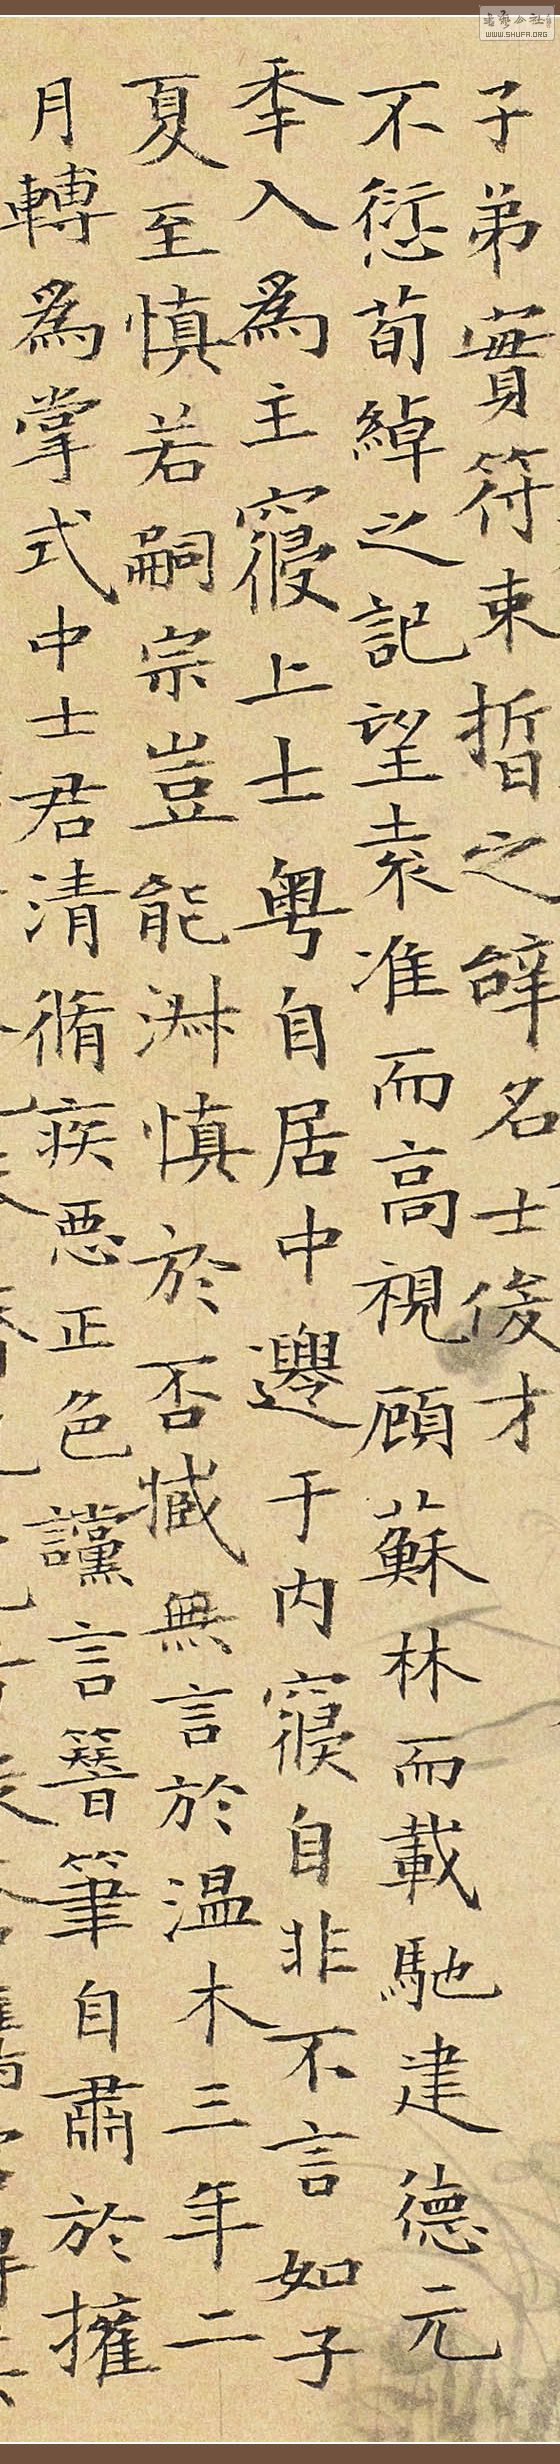 子弟賓符束晳之辞名士俊才
不愆荀綽之記望袁准而高視顧蘇林而載馳建德元
秊入為主寢上士粤自居中遷于内寢自非不言如子
夏至慎若嗣宗豈能淋慎於否臧無言於温木三年二
月轉為掌式中士君清脩疾惡正色讜言簪筆自肅於擁
书艺公社
WWW.SHUFA.ORG